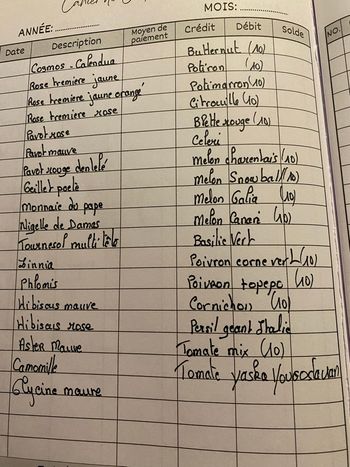 Cahier de
MOIS: ..........
ANNÉE: ..........
Date Description Moyen de paiement Crédit Débit Solde
NO.
Cosmos - Calendua Butternut (10)
Rose tremiere jaune Potiron (10)
Rose tremiere jaune orangé Potimarron (10)
Rose tremiere rose Citrouille (10)
Pavot rose Blette rouge (10)
Pavot mauve Celeri
Pavot rouge dentelé melon charentais (10)
Oeillet poete melon Snowball (10)
Monnaie du pape melon Galia (10)
Nigelle de Damas melon Canari (10)
Tournesol multi tete Basilic Vert
Zinnia Poivron corne vert (10)
Phlomis Poivron topepo (10)
Hibiscus mauve Cornichon (10)
Hibiscus rose Persil geant Italie
Aster Mauve Tomate mix (10)
Camomille Tomate yaska
Glycine mauve